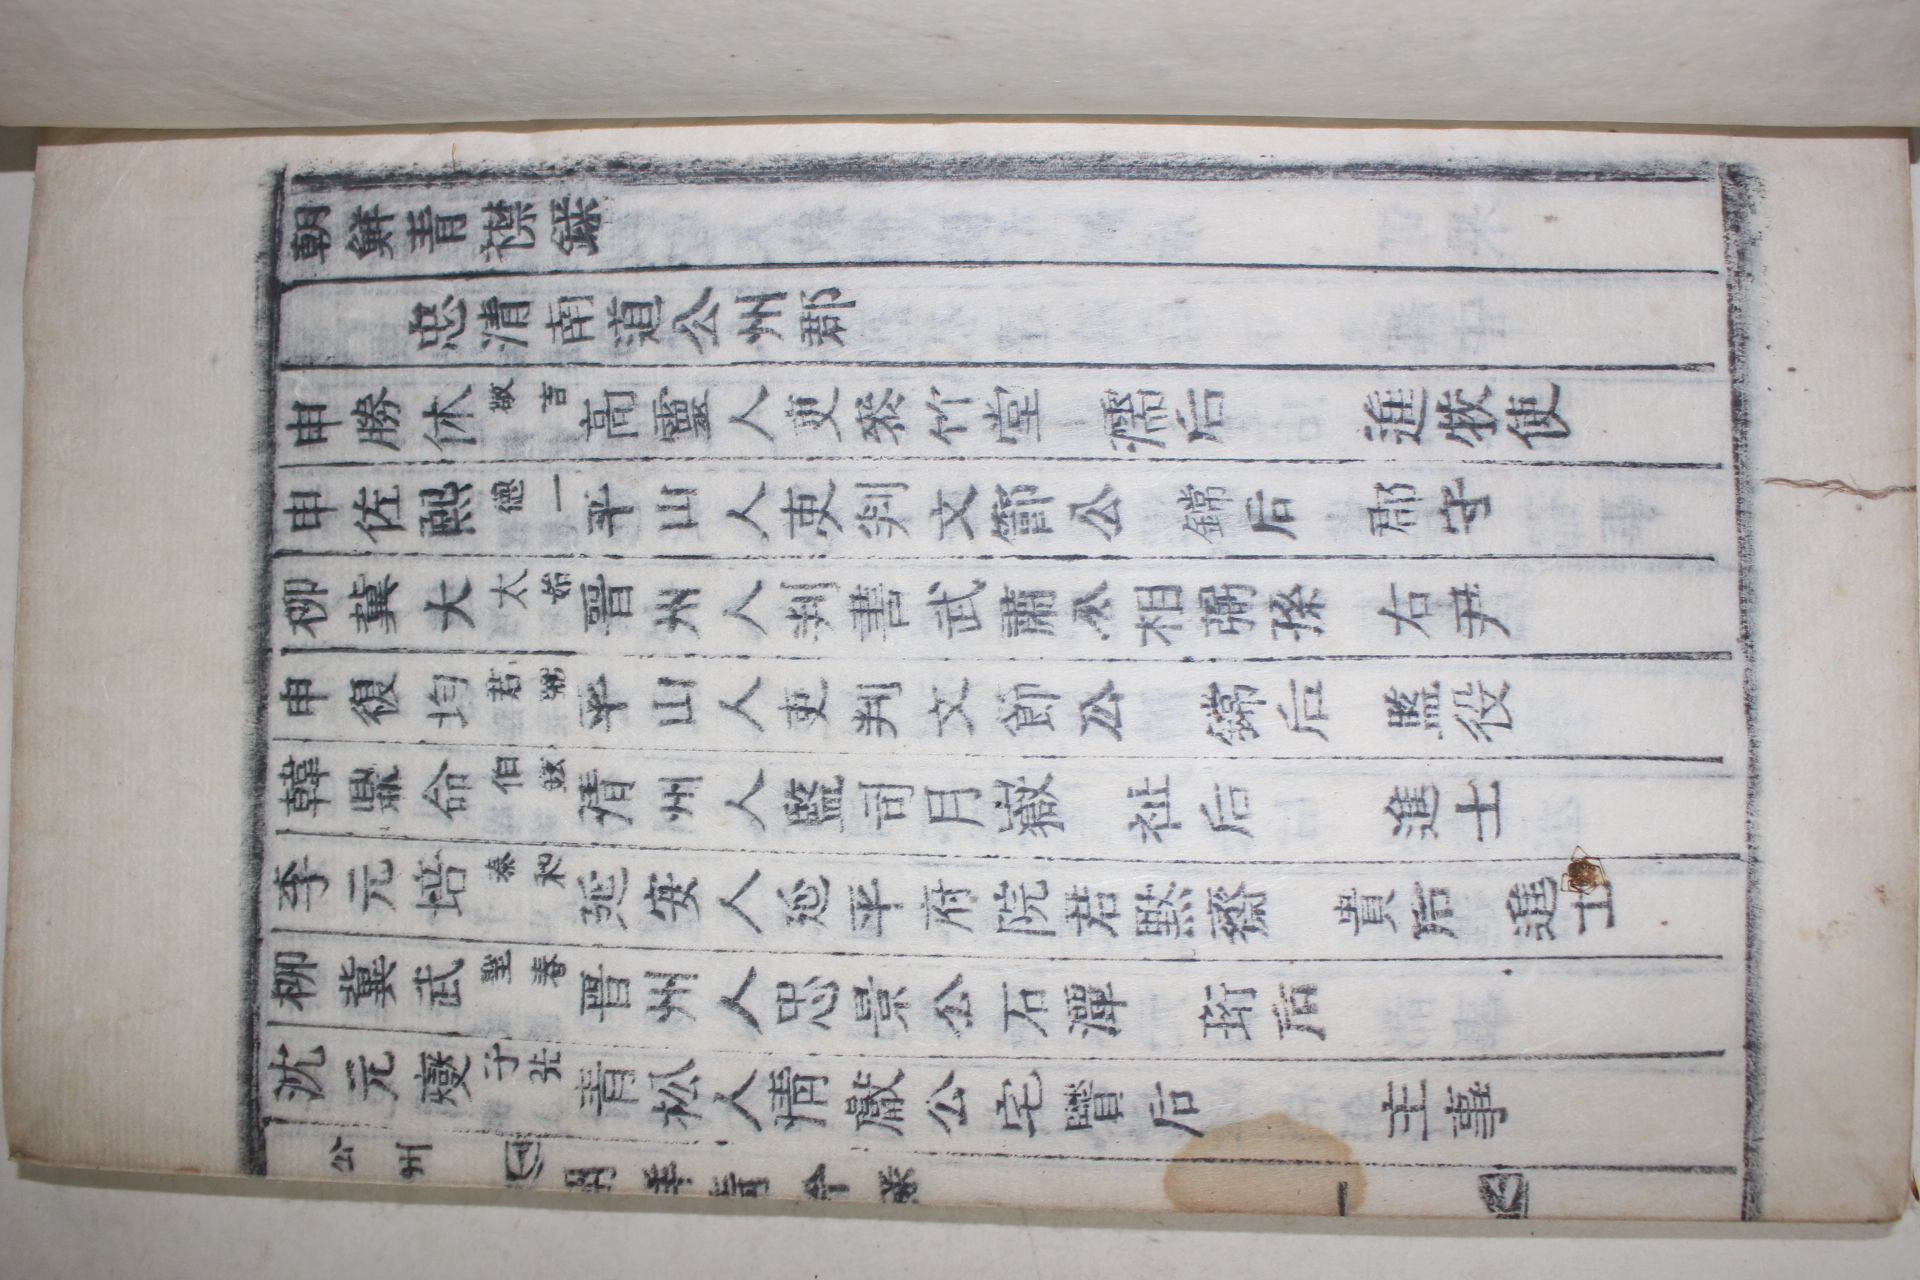 朝鮮青襟錄
忠清南道公州郡
申勝休 敬言 高靈人吏參竹堂 濡后 進牧使
申佐熙 德一 平山人吏判文節公 鏛后 郡守
柳冀大 太始 晋州人判書武肅公相弼孫 右尹
申復均 君弼 平山人吏判文節公 鏛后 監役
韓鼎命 伯鉉 清州人監司月嶽 祉后 進士
李元培 泰和 延安人延平府院君默齋 貴后 進士
柳冀武 聖春 晋州人忠景公石潭 珩后
沈元燮 子張 青松人清嚴公宅賢后 主事
公州 朝鮮青今錄 一